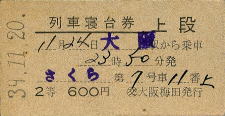 列車寝台券 上段
11月24日 大阪 駅から乗車
23時50分発
さくら 第7号車11番上
2等 600円 大阪梅田発行
34.11.20.